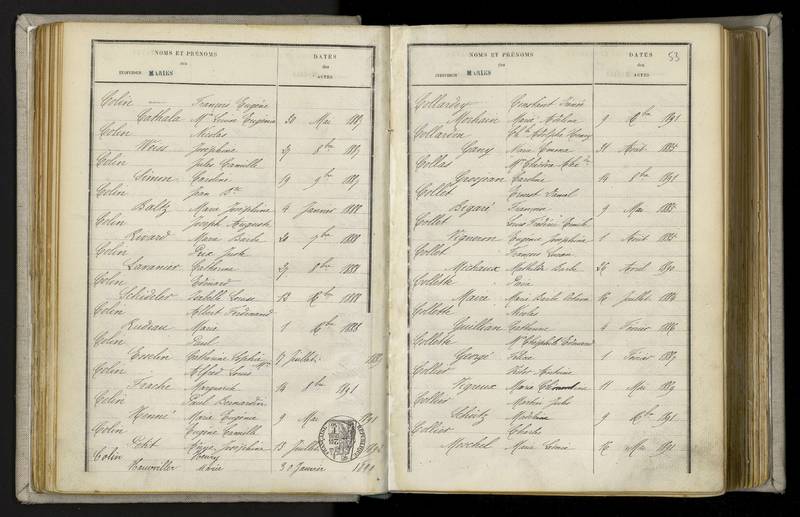 NOMS ET PRÉNOMS
des
INDIVIDUS MARIÉS
DATES
des
ACTES
Colin François Eugène
Cathala Mie Louise Eugénie 20 Mai 1887
Colin Nicolas
Weiss Joséphine 27 8bre 1887
Colin Jules Camille
Simon Caroline 19 9bre 1887
Colin Jean Bte
Baltz Marie Joséphine 4 Janvier 1888
Colin Joseph Auguste
Rivard Maria Barbe 20 7bre 1888
Colin
Lavanier Catherine 27 8bre 1888
Colin Edouard
Schidler Isabelle Louise 13 Xbre 1888
Colin Albert Ferdinand
Rudeau Marie 1 Xbre 1888
Colin Paul
Evelin Catherine Sophie 17 Juillet 1889
Colin Alfred Louis
Frache Marguerite 14 8bre 1891
Colin Paul Bernardin
Henné Marie Eugénie 9 Mai 1891
Colin Eugène Camille
Petit Joséphine 13 Juillet
Colin Henry
Hauviller Marie 30 Janvier
NOMS ET PRÉNOMS
des
INDIVIDUS MARIÉS
DATES
des
ACTES
53
Collardey Constant
Morhain Marie Adeline 9 Xbre 1891
Collardin Adolphe Henry
Gany Marie Emma 31 Août 1885
Collas
Grosjean Caroline 14 8bre 1891
Collet Ernest Daniel
Bégaré Françoise 9 Mai 1885
Collet Louis Frédéric Emile
Vigneron Eugénie Joséphine 1 Août 1885
Collet François Lucien
Michaux Mathilde Barbe 26 Avril 1890
Collette
Maire Marie Barbe 16 Juillet 1886
Collette Nicolas
Guillian Catherine 4 Février 1886
Collette
Georgé Félicie 1 Février 1887
Collier Victor Antoine
Vigreux Marie 11 Mai 1889
Collier Martin Jules
Schütz Madeleine 9 Xbre 1891
Collier Charles
Mockel Marie Louise 16 Mai 1891